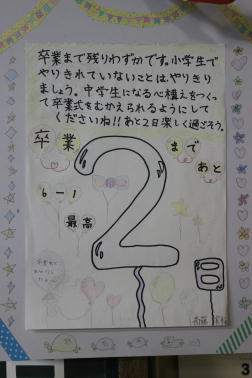 卒業まで残りわずかです。小学生で
やりきれていないことは、やりきり
ましょう。中学生になる心構えをつくっ
て卒業式をむかえられるようにして
くださいね!!あと2日楽しく過ごそう。
卒業まで
あと
2
日
6-1
最高
斉藤
3